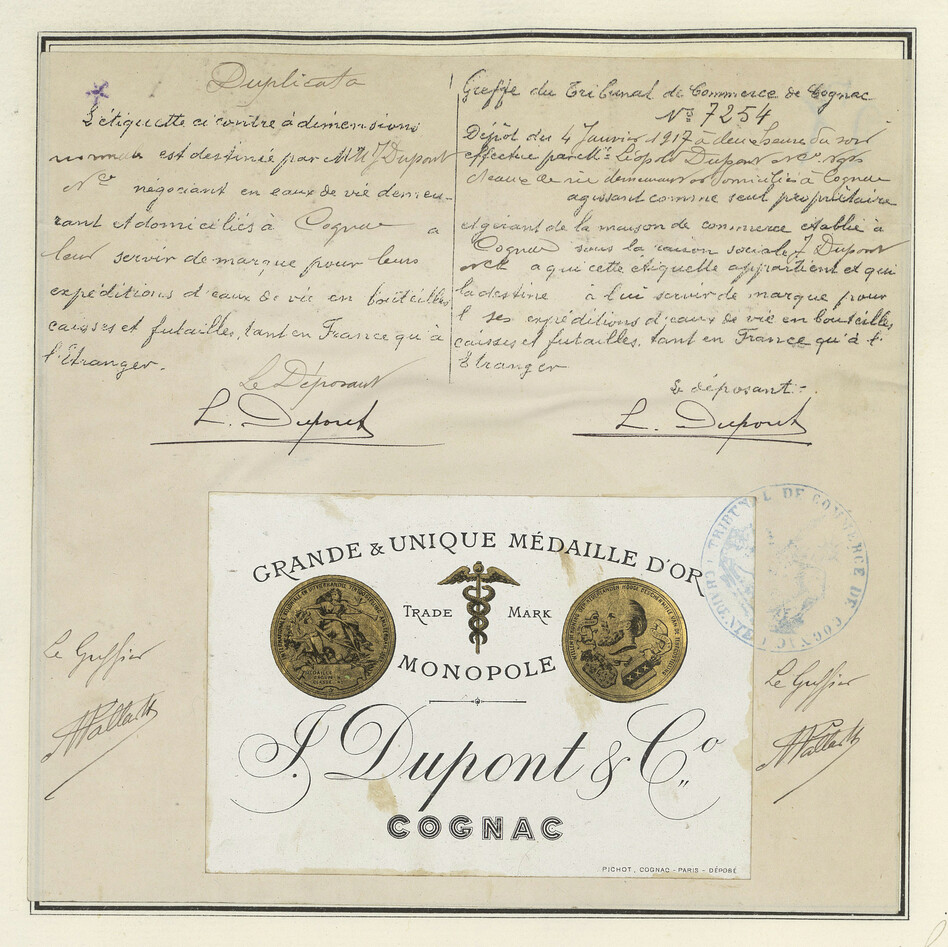 Duplicata
L'étiquette ci contre à dimensions
est destinée par MM J Dupont
& Co négociant en eaux de vie demeu-
rant et domiciliés à Cognac a
leur servir de marque pour leurs
expéditions d'eaux de vie en bouteilles
caisses et futailles, tant en France qu'à
l'Étranger.
Le Déposant
L. Dupont
Greffe du Tribunal de Commerce de Cognac
No 7254
Dépôt du 4 Janvier 1917 à deux heures du soir
effectué par Mr Léopold Dupont
d'eaux de vie demeurant et domicilié à Cognac
agissant comme seul propriétaire
et gérant de la maison de commerce établie à
Cognac sous la raison sociale J. Dupont
& Co a qui cette étiquette appartient et qui
la destine à lui servir de marque pour
ses expéditions d'eaux de vie en bouteilles
caisses et futailles, tant en France qu'à l'
Étranger
Le déposant
L. Dupont
GRANDE & UNIQUE MÉDAILLE D'OR
TRADE MARK
MONOPOLE
J. Dupont & Co
COGNAC
PICHOT, COGNAC - PARIS - DÉPOSÉ
TRIBUNAL DE COMMERCE DE COGNAC
Le Greffier
Le Greffier